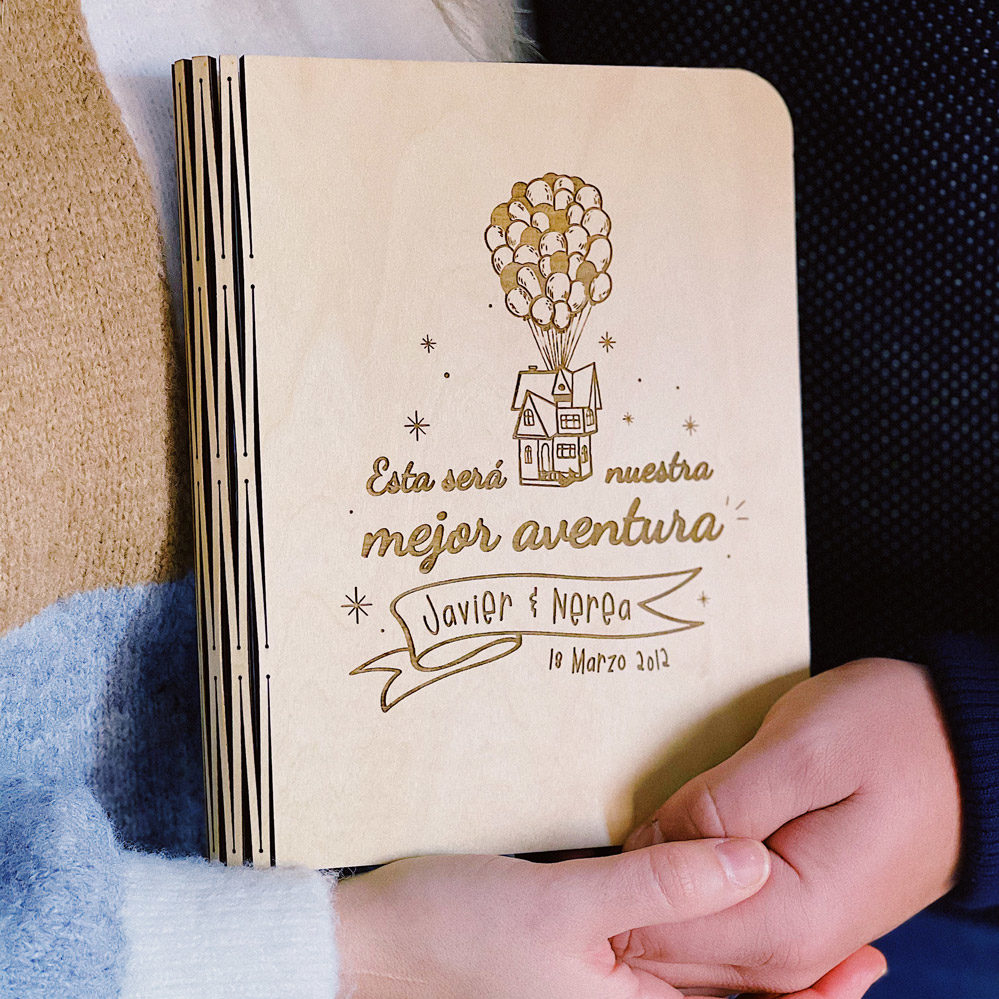 Esta será nuestra
mejor aventura
Javier & Nerea
18 Marzo 2012